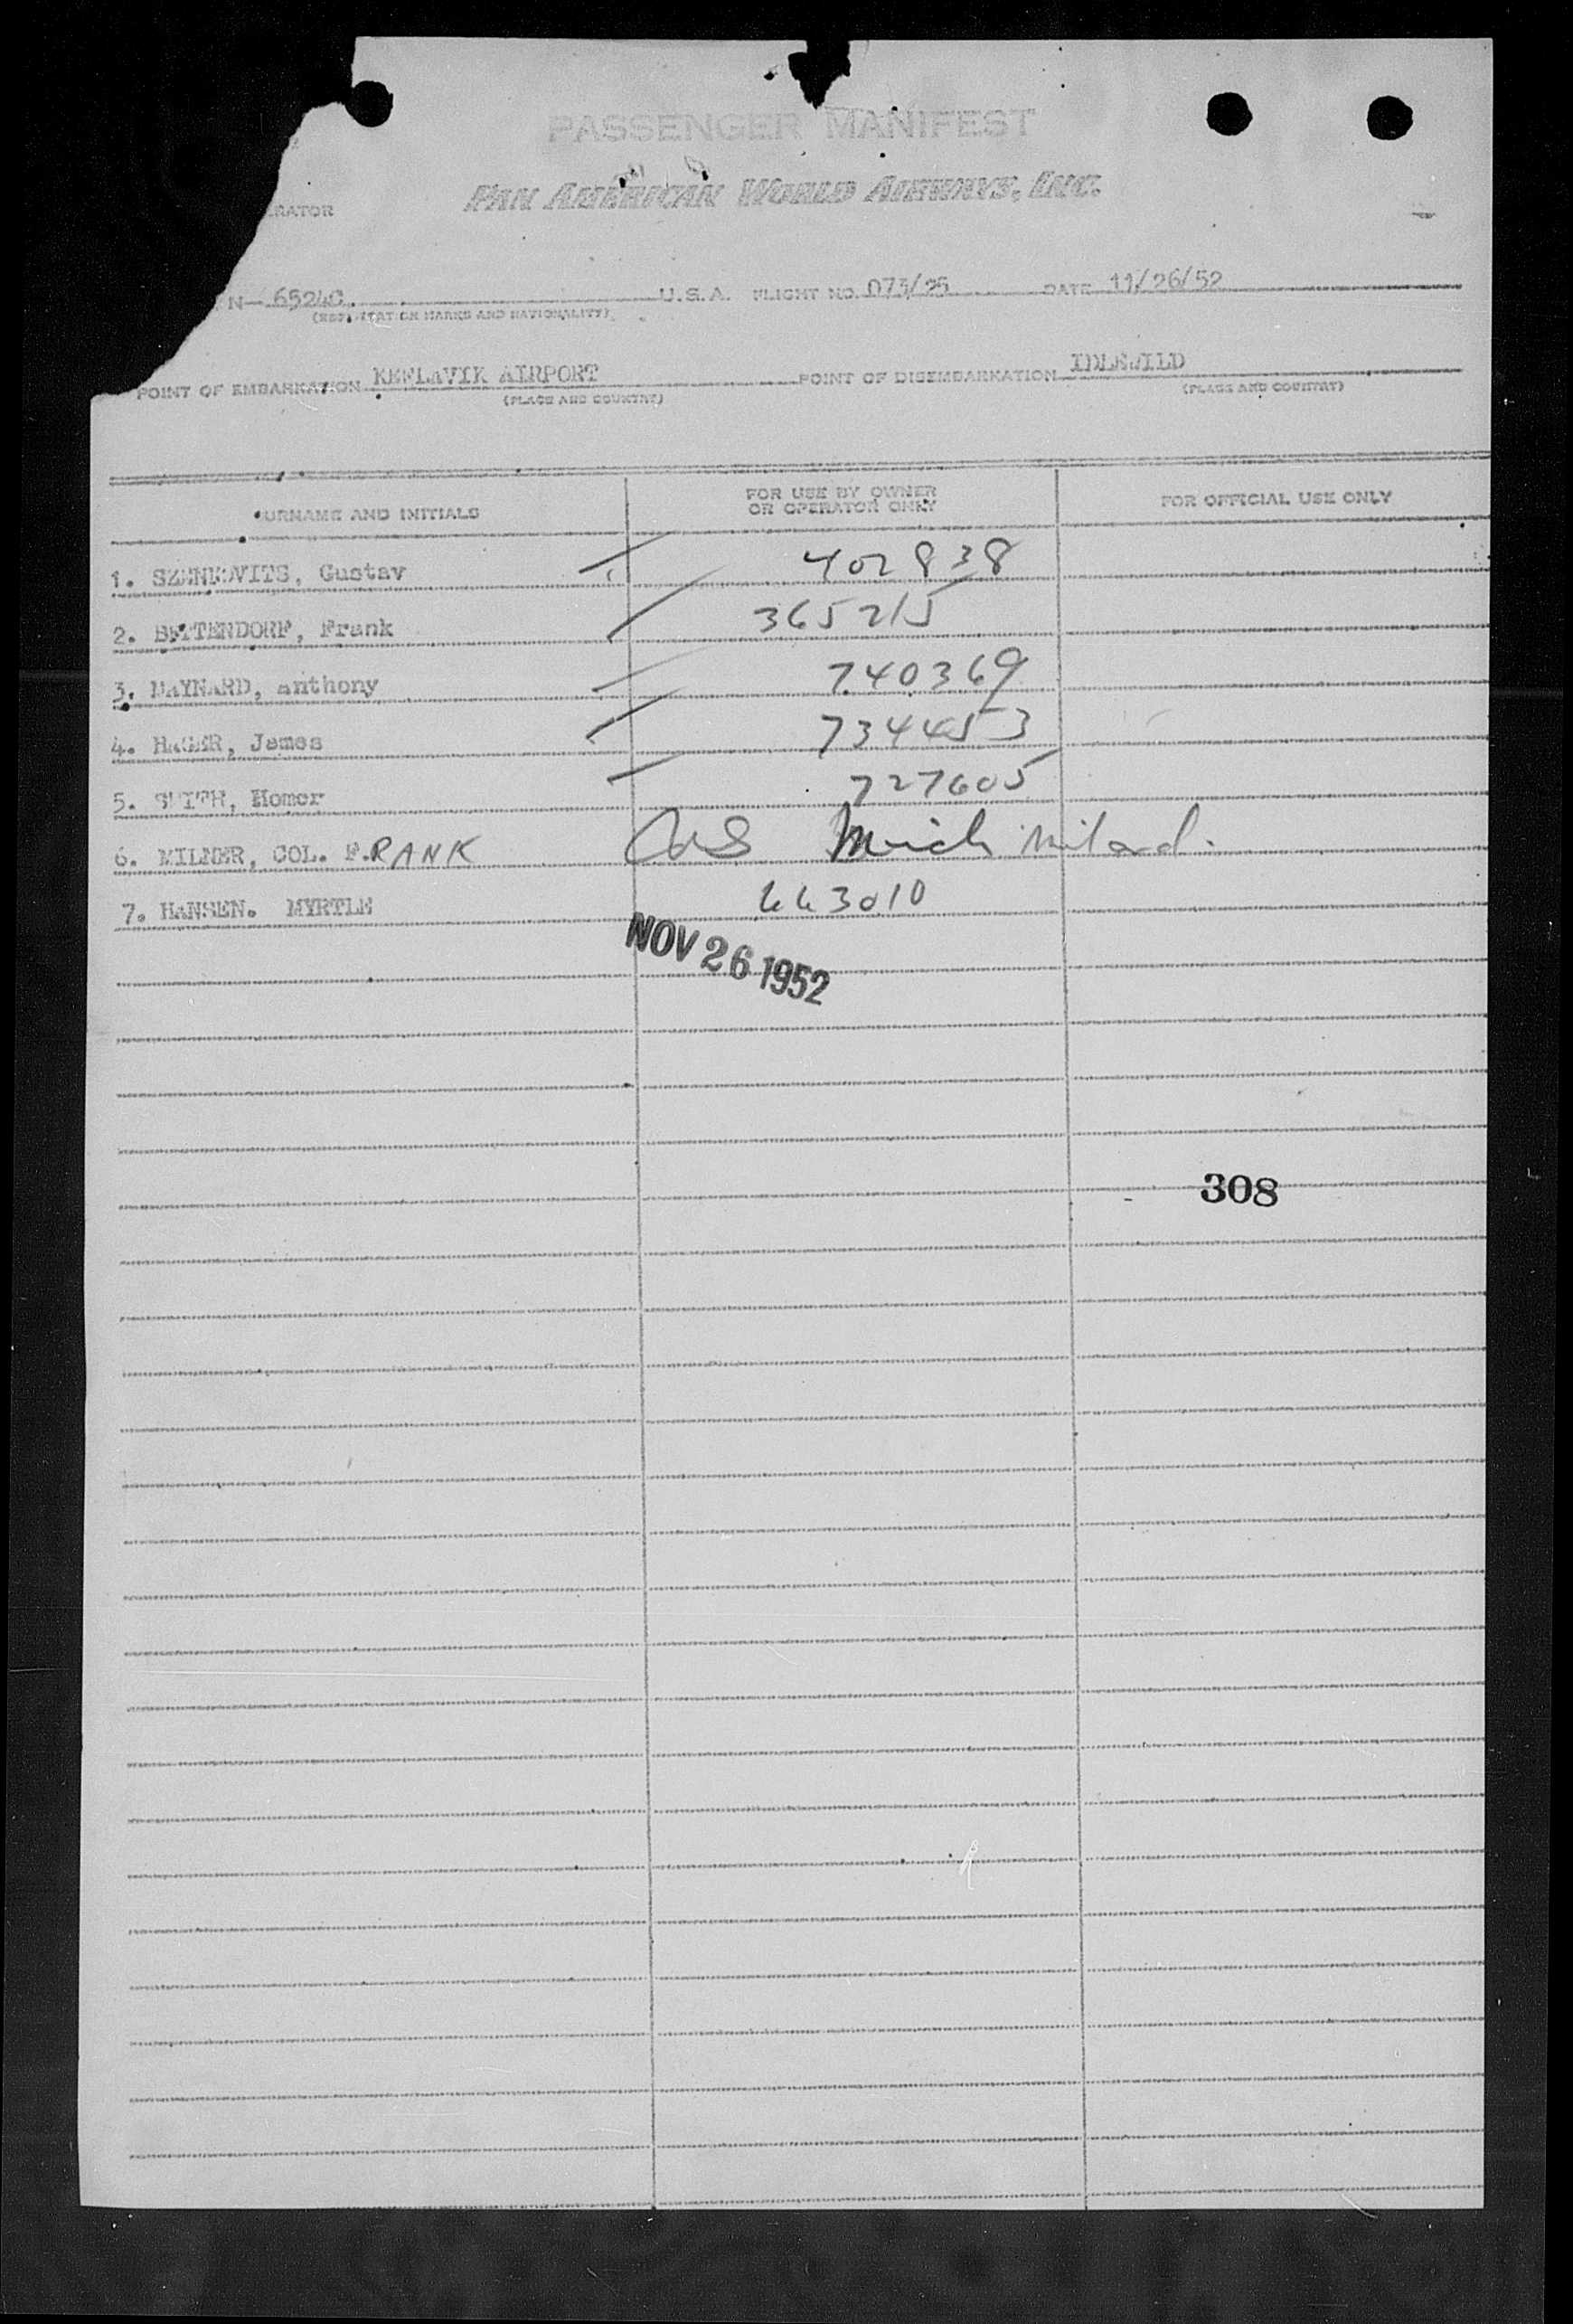 PASSENGER MANIFEST
PAN AMERICAN WORLD AIRWAYS, INC.
ERATOR
N- 6524C. U.S.A. FLIGHT NO. 073/25 DATE 11/26/52
(REGISTRATION MARKS AND NATIONALITY)
POINT OF EMBARKATION KEFLAVIK AIRPORT POINT OF DISEMBARKATION IDLEWILD
(PLACE AND COUNTRY) (PLACE AND COUNTRY)
URNAME AND INITIALS FOR USE BY OWNER OR OPERATOR ONLY FOR OFFICIAL USE ONLY
1. SZENKOVITS, Gustav 402838
2. BETTENDORF, Frank 365215
3. MAYNARD, Anthony 740369
4. HAGER, James 734453
5. SMITH, Homer 727605
6. MILNER, COL. F.RANK Mich
7. HANSEN. MYRTLE 443010
NOV 26 1952
308